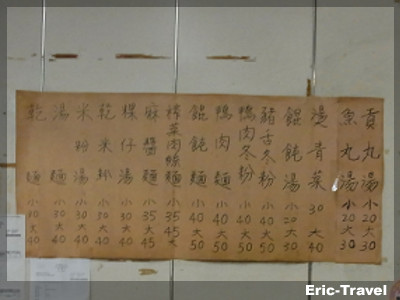 貢丸湯 小20 大30
魚丸湯 小20 大30
燙青菜 30 大40
餛飩湯 小20 大30
豬舌冬粉 小40 大50
鴨肉冬粉 小40 大50
鴨肉麵 小40 大50
餛飩麵 小40 大50
榨菜肉絲麵 小35 45大
麻醬麵 小35 大45
粿仔湯 小30 大40
乾米粉 小30 大40
米粉湯 小30 大40
湯麵 小30 大40
乾麵 小30 大40
Eric-Travel